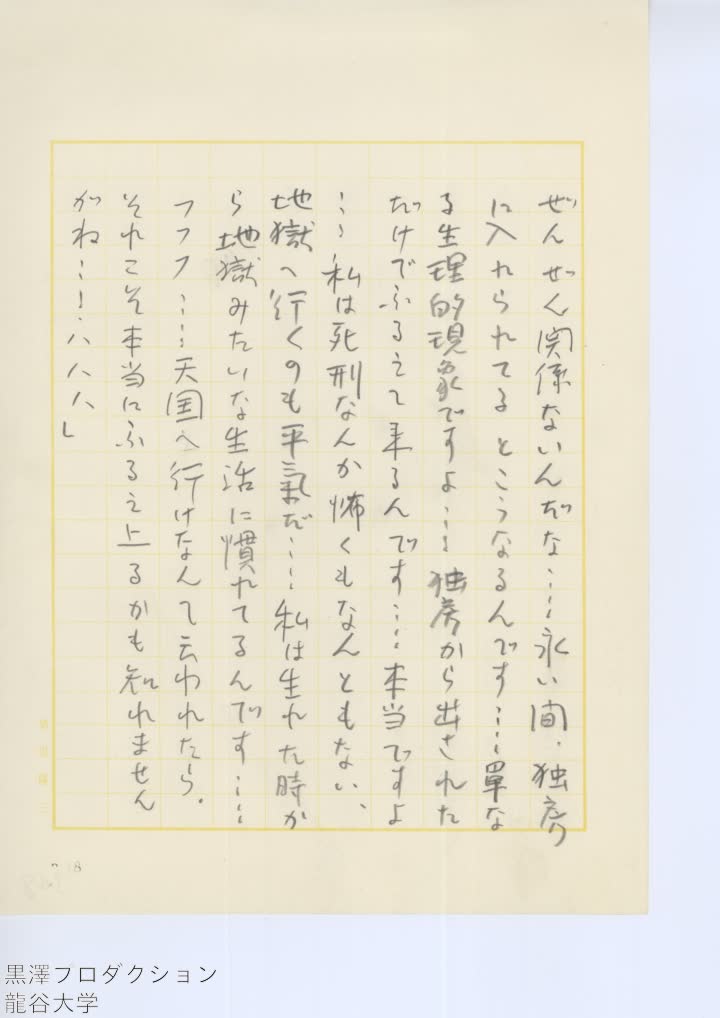 ぜんぜん関係ないんだな……永い間、独房
に入れられてるとこうなるんです……單な
る生理的現象ですよ……独房から出された
だけでふるえて来るんです……本当ですよ
……私は死刑なんか怖くもなんともない、
地獄へ行くのも平氣だ……私は生れた時か
ら地獄みたいな生活に慣れてるんです……
フフフ……天国へ行けなんて云われたら、
それこそ本当にふるえ上るかも知れません
がね……！ハハハ」
8
黒澤プロダクション
龍谷大学